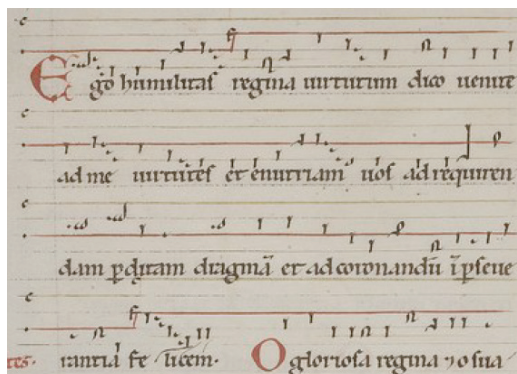 Ego humilitas regina uirtutum dico uenite
ad me uirtutes et enutriam uos ad requiren
dam ꝑditam dragmā et ad coronandū ī ꝑseue
tes. rantia felicem. O gloriosa regina ⁊ o sua